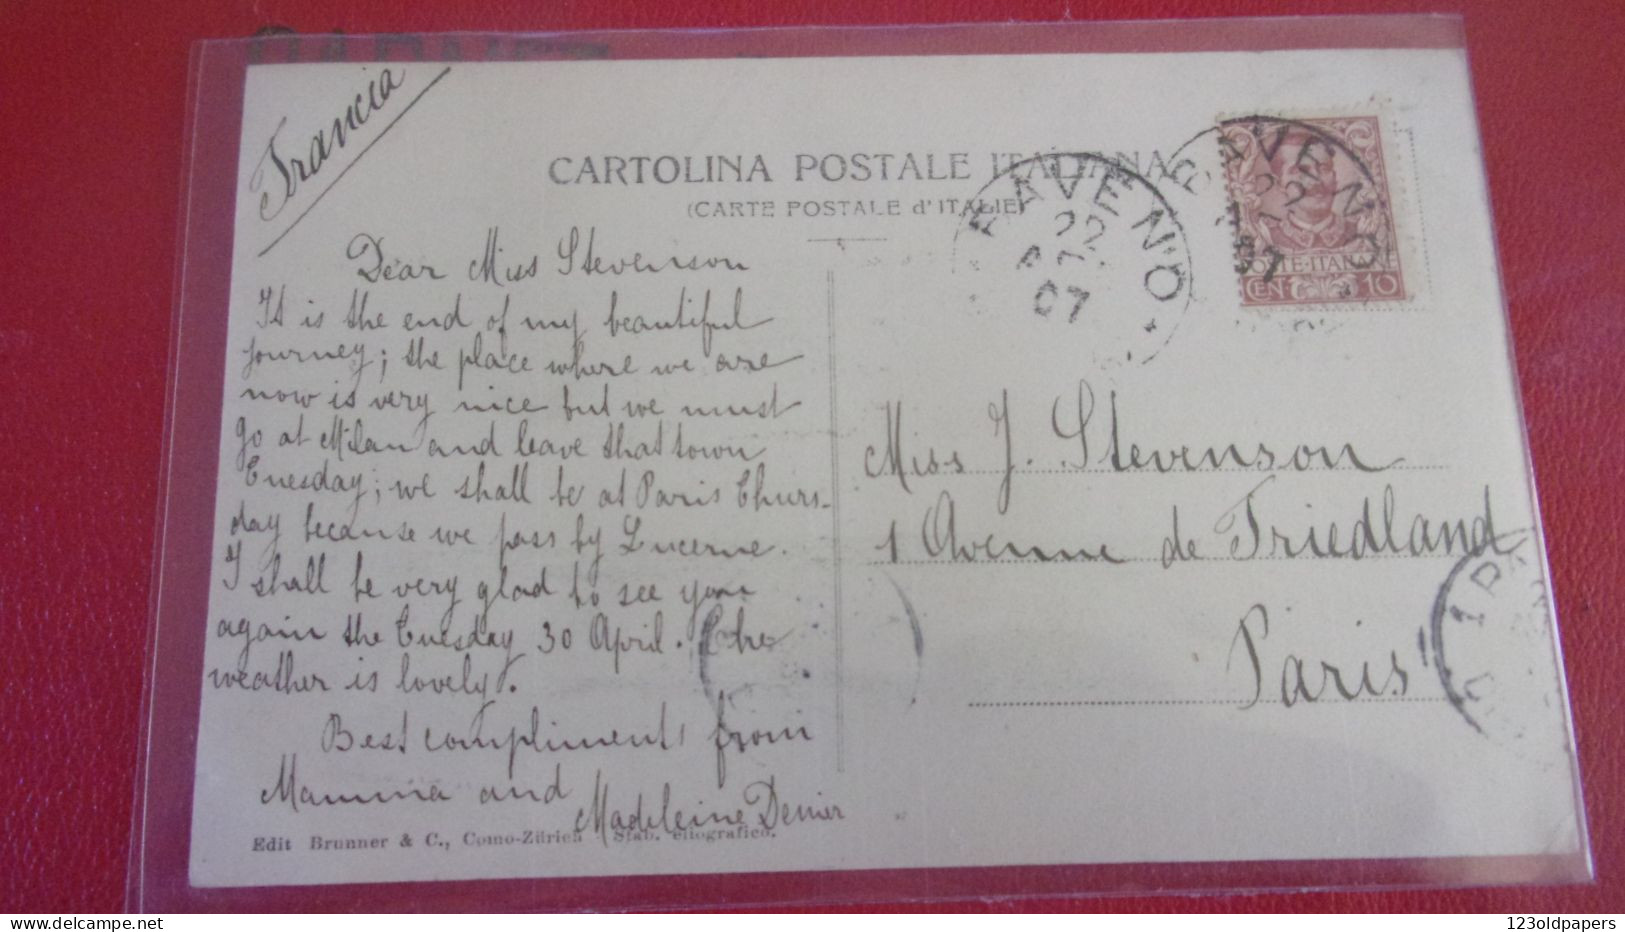 Francia
CARTOLINA POSTALE ITALIANA
(CARTE POSTALE d'ITALIE)
BAVENO
22
07
BAVENO
22
07
POSTE·ITALIANE
CEN 10
Dear Miss Stevenson
It is the end of my beautiful
journey; the place where we are
now is very nice but we must
go at Milan and leave that town
Tuesday; we shall be at Paris Thurs-
day because we pass by Lucerne.
I shall be very glad to see you
again the Tuesday 30 April. The
weather is lovely.
Best compliments from
Mamma and
Madeleine
Miss J. Stevenson
1 Avenue de Friedland
Paris
Edit Brunner & C., Como-Zürich - Stab. eliografico.
123oldpapers